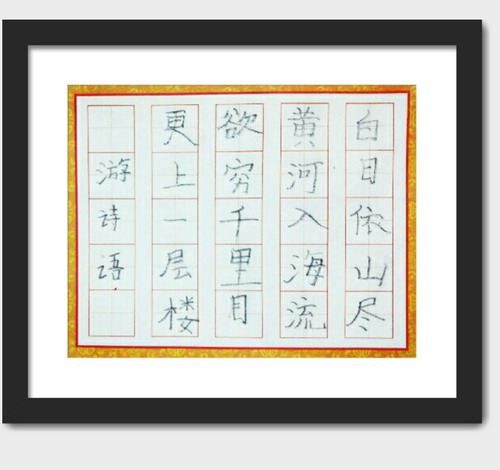 白日依山尽
黄河入海流
欲穷千里目
更上一层楼
游诗语